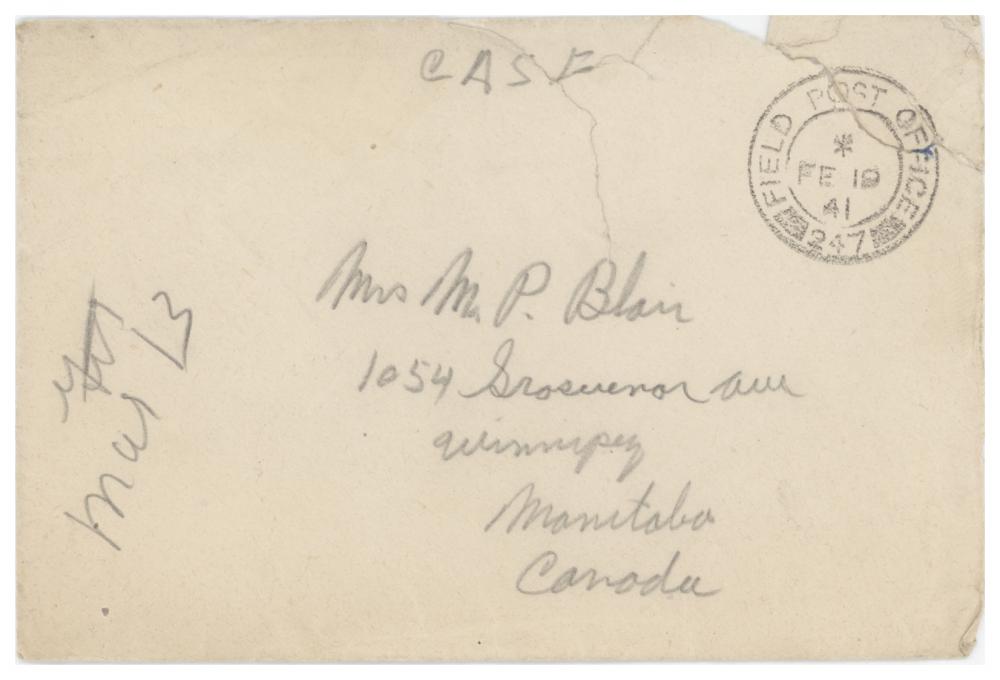 CASF
FIELD POST OFFICE
*
FE 19
41
247
Mrs M. P. Blair
1054 Grosvenor Ave
Winnipeg
Manitoba
Canada
Mar 13